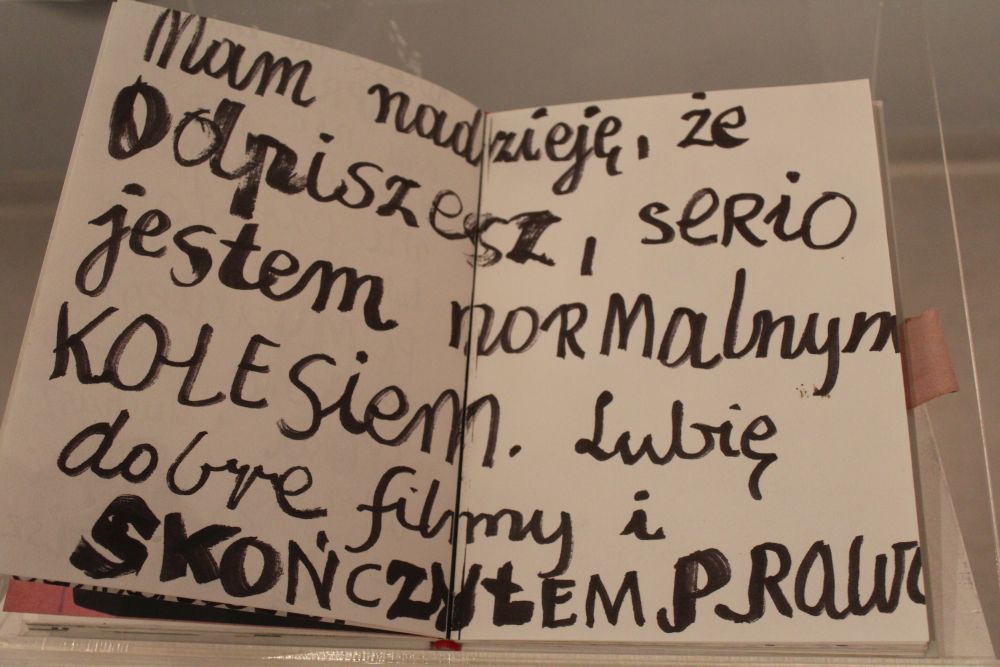 Mam nadzieję, że
Odpiszesz, seRiO
jestem noRMalnym
KOLESiem. Lubię
dobre filmy i
SKOŃCZYŁEM PRawo